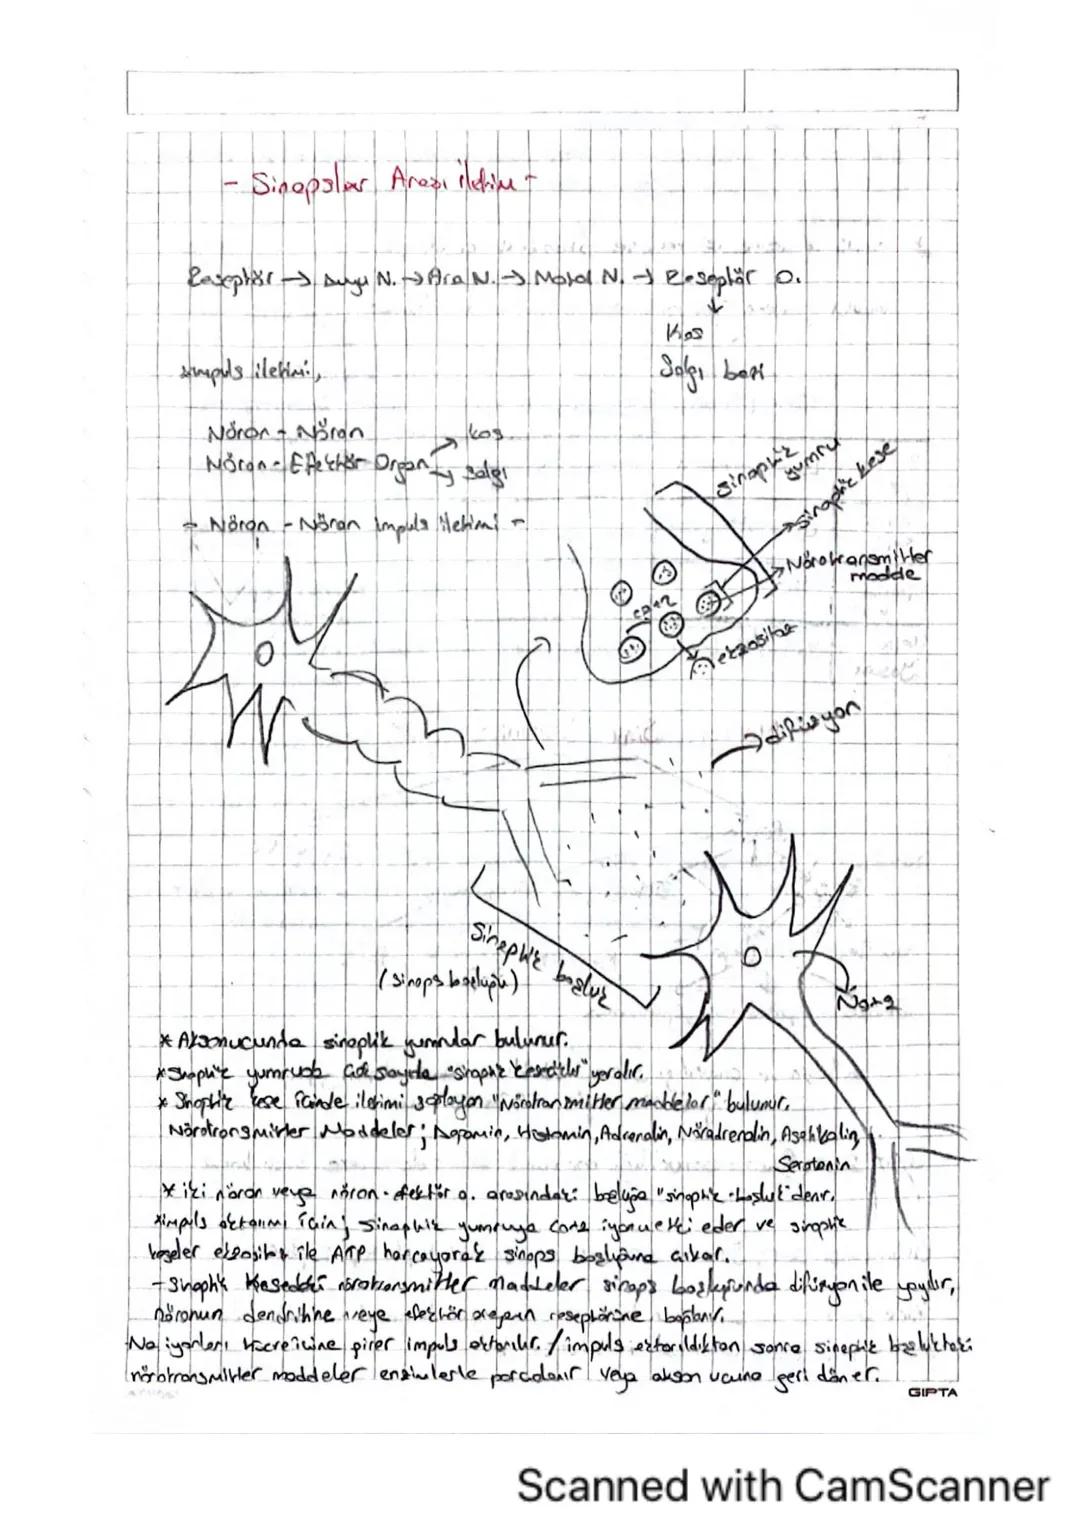 - Sinapslar Arası iletim -
Reseptör → Duyu N. → Ara N. → Motor N. → Reseptör O.
↓
Kas
Salgı bezi
impuls iletimi,
Nöron - Nöron
Nöron - Efektör Organ → kas
→ salgı
- Nöron - Nöron impuls iletimi -
sinaptik yumru
sinaptik kese
Nörotransmitter madde
ca+2
ekzositoz
difüzyon
Sinaptik boşluk
(sinaps boşluğu)
Na+
* Akson ucunda sinaptik yumrular bulunur.
* Sinaptik yumruda çok sayıda "sinaptik kesecikler" yer alır.
* Sinaptik kese içinde iletimi sağlayan "Nörotransmitter maddeler" bulunur.
Nörotransmitter Maddeler; Dopamin, Histamin, Adrenalin, Nöradrenalin, Asetilkolin,
Serotonin
* iki nöron veya nöron - efektör o. arasındaki boşluğa "sinaptik boşluk" denir.
* impuls aktarımı için; sinaptik yumruya Ca+2 iyonu etki eder ve sinaptik
keseler ekzositoz ile ATP harcayarak sinaps boşluğuna çıkar.
- Sinaptik Kesedeki nörotransmitter maddeler sinaps boşluğunda difüzyon ile yayılır,
nöronun dendritine veya efektör organın reseptörüne bağlanır.
Na iyonları hücre içine girer impuls aktarılır. / impuls aktarıldıktan sonra sinaptik boşluktaki
nörotransmitter maddeler enzimlerle parçalanır veya akson ucuna geri döner.
GIPTA
Scanned with CamScanner